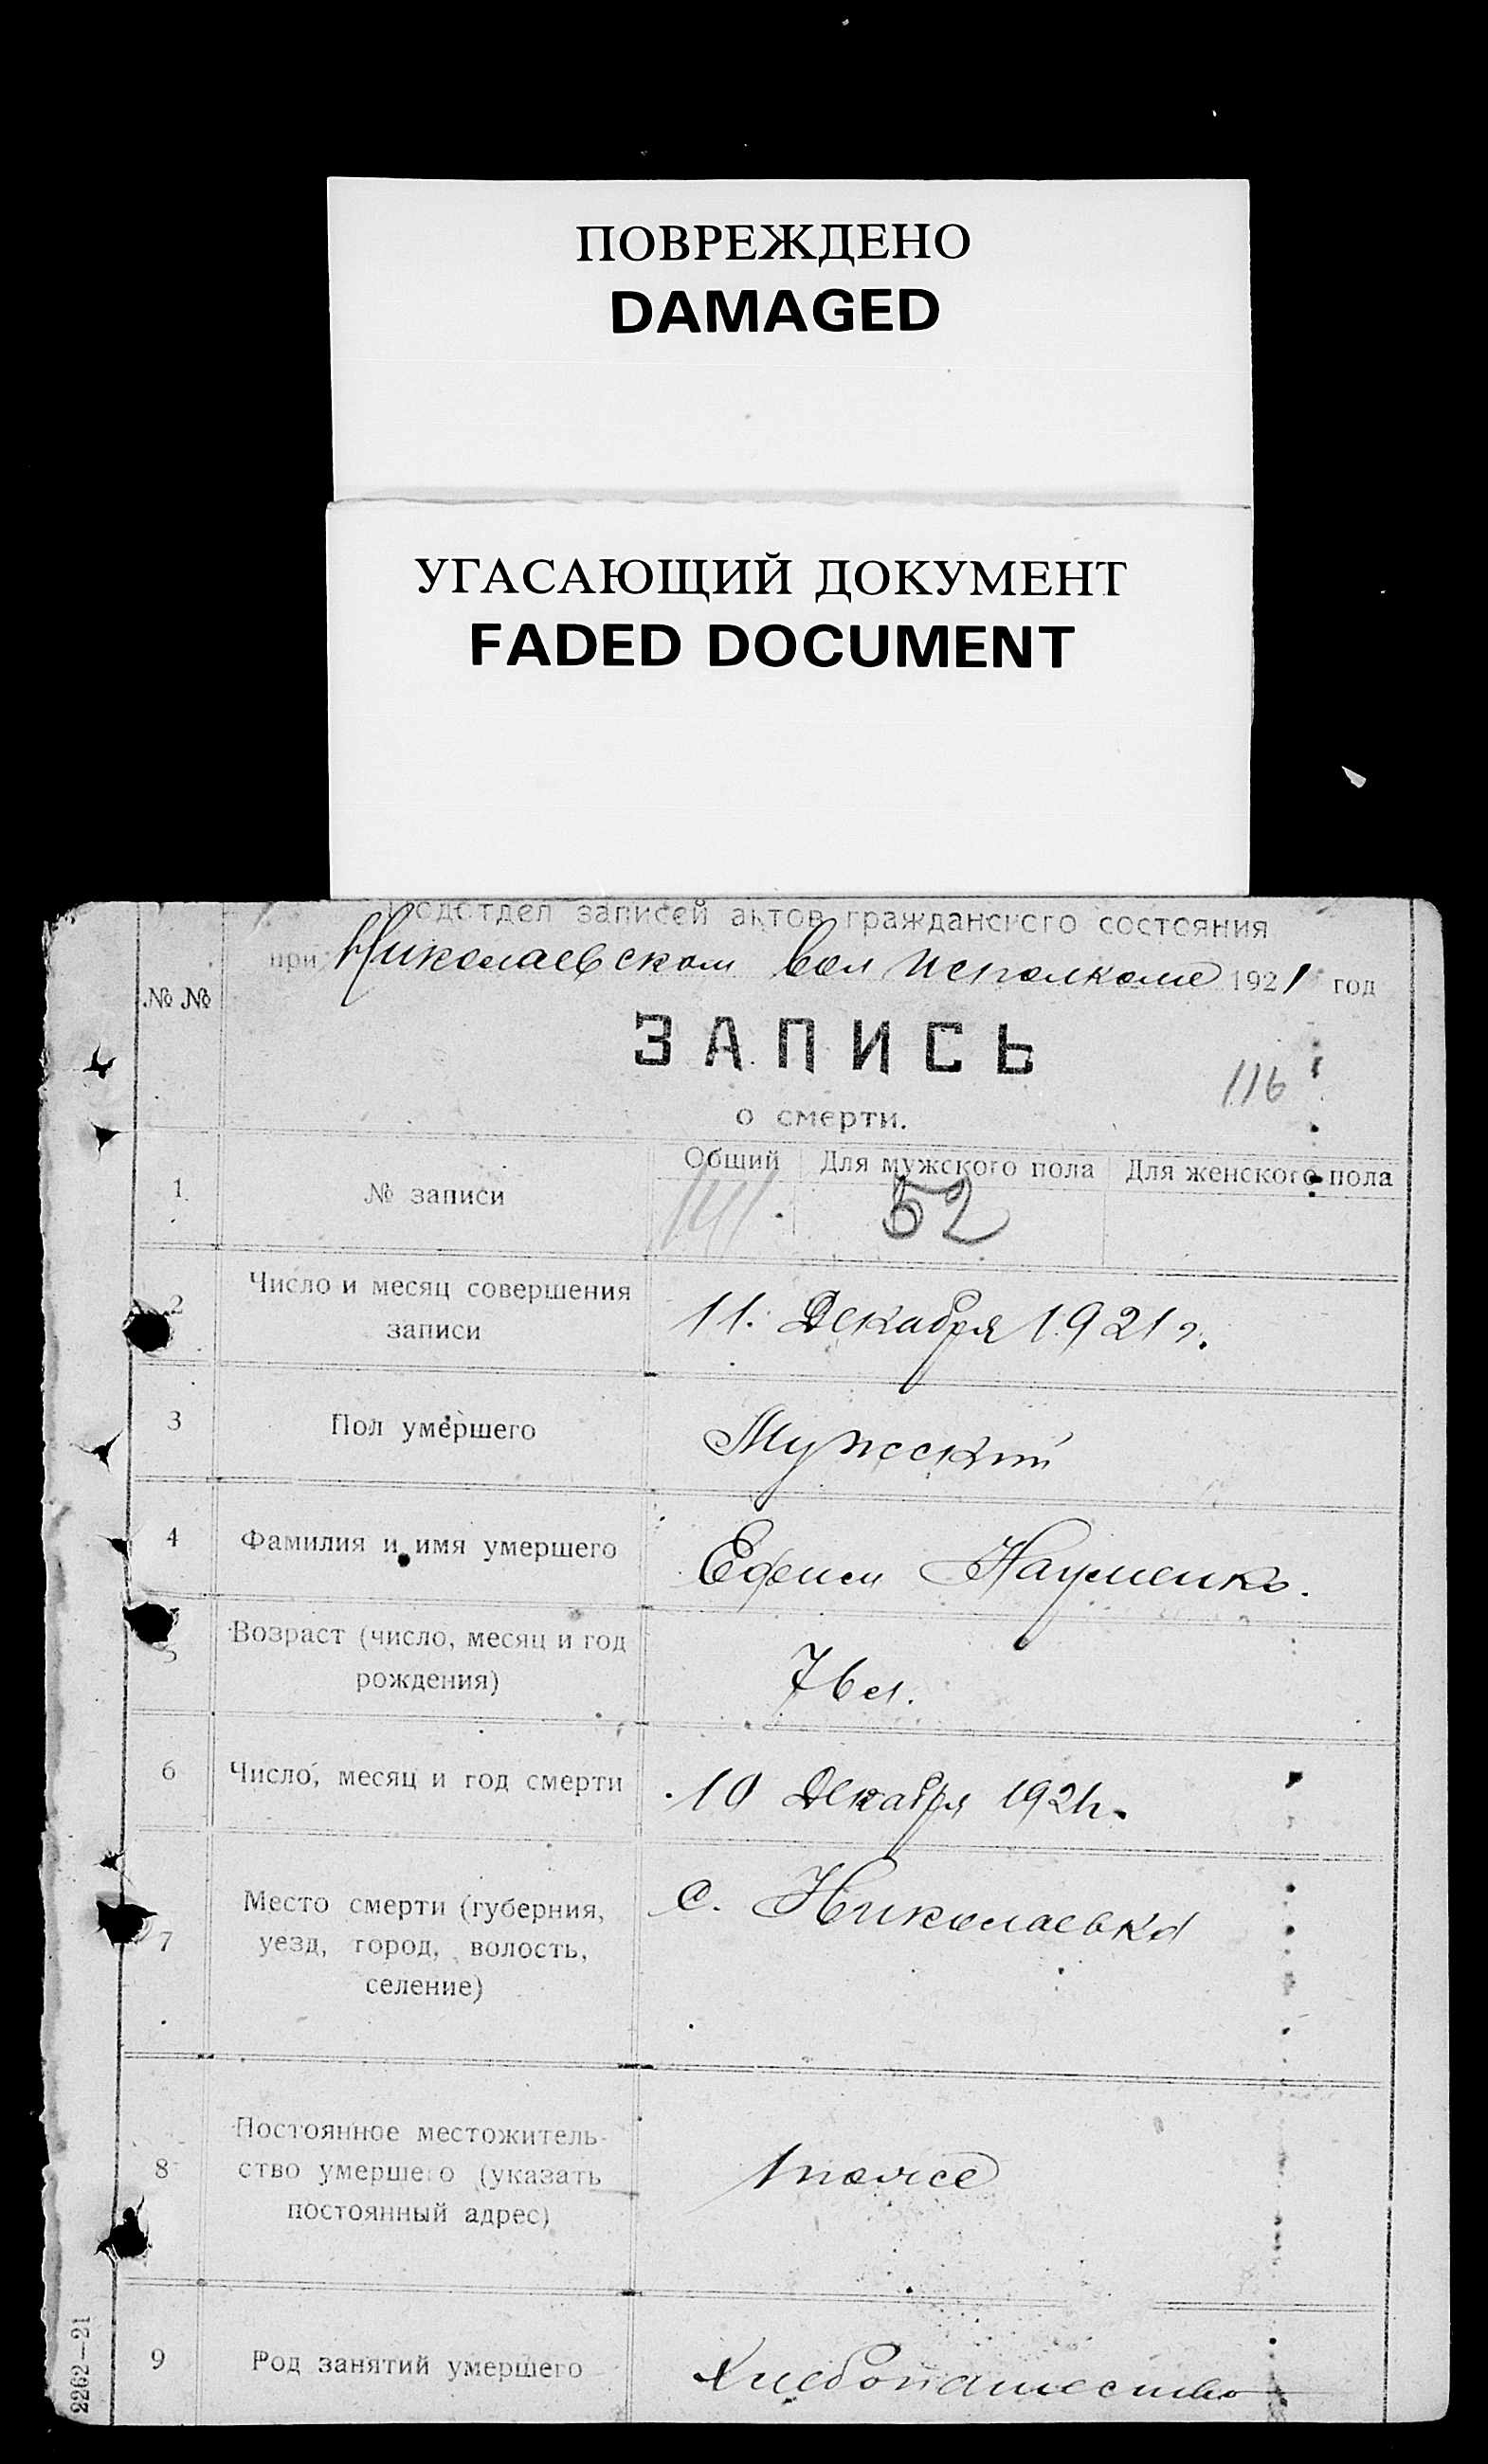 ПОВРЕЖДЕНО
DAMAGED
УГАСАЮЩИЙ ДОКУМЕНТ
FADED DOCUMENT
Подотдел записей актов гражданского состояния
при Николаевском Вол Исполкоме 1921 год
№ №
ЗАПИСЬ
116
о смерти.
Общий Для мужского пола Для женского пола
1 № записи 141 52
2 Число и месяц совершения
записи
11. Декабря 1921 г.
3 Пол умершего Мужский
4 Фамилия и имя умершего Ефим Науменко.
5 Возраст (число, месяц и год
рождения)
76 л.
6 Число, месяц и год смерти 10 Декабря 1921 г.
7 Место смерти (губерния,
уезд, город, волость,
селение)
с. Николаевка
8 Постоянное местожитель-
ство умершего (указать
постоянный адрес)
тоже
9 Род занятий умершего Хлебопашество
2262—21